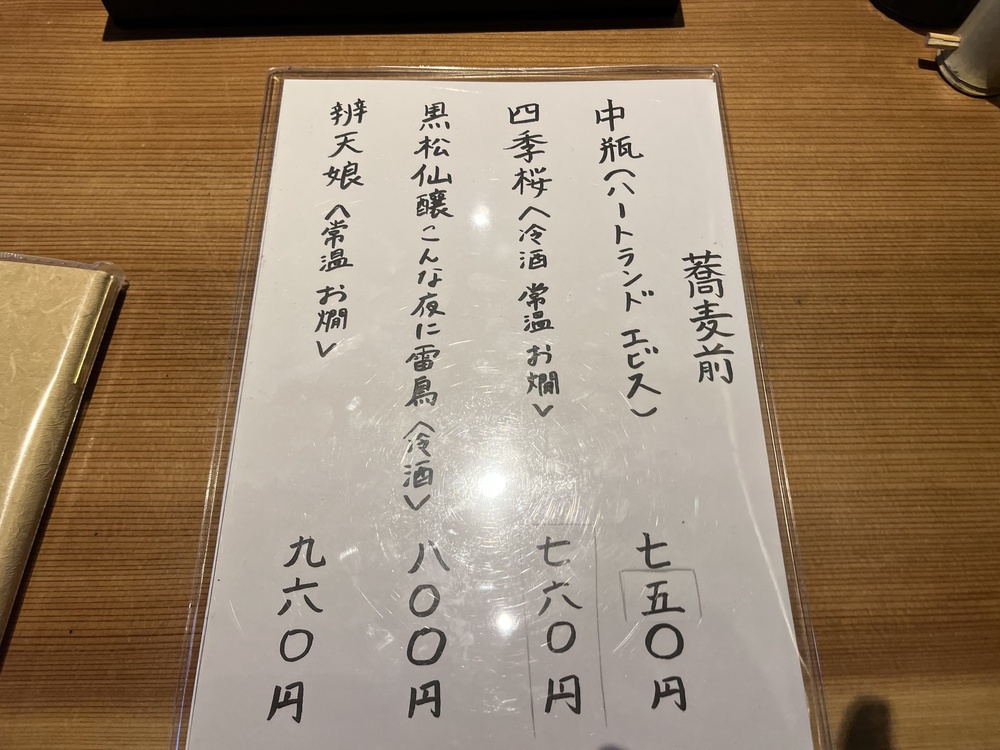 蕎麦前
中瓶(ハートランド エビス) 七五〇円
四季桜〈冷酒 常温 お燗〉 七六〇円
黒松仙醸こんな夜に雷鳥〈冷酒〉 八〇〇円
辨天娘〈常温 お燗〉 九六〇円